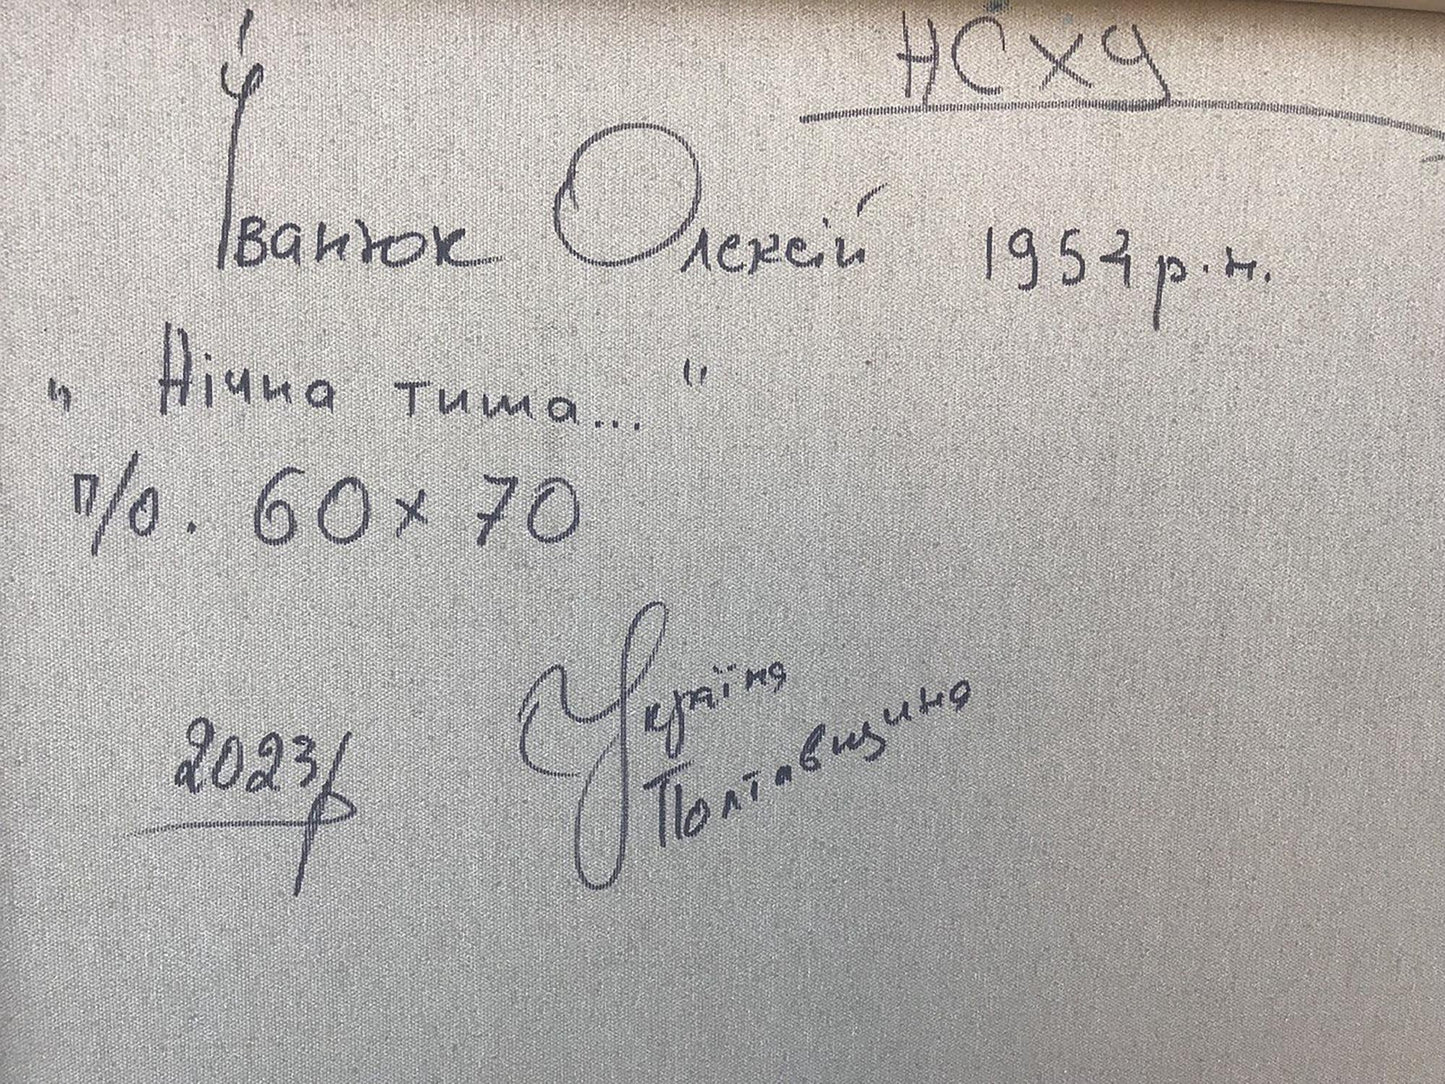 НСХУ
Іванюк Олексій 1952 р.н.
„ Нічна тиша... "
п/о. 60 х 70
Україна
2023р
Полтавщина